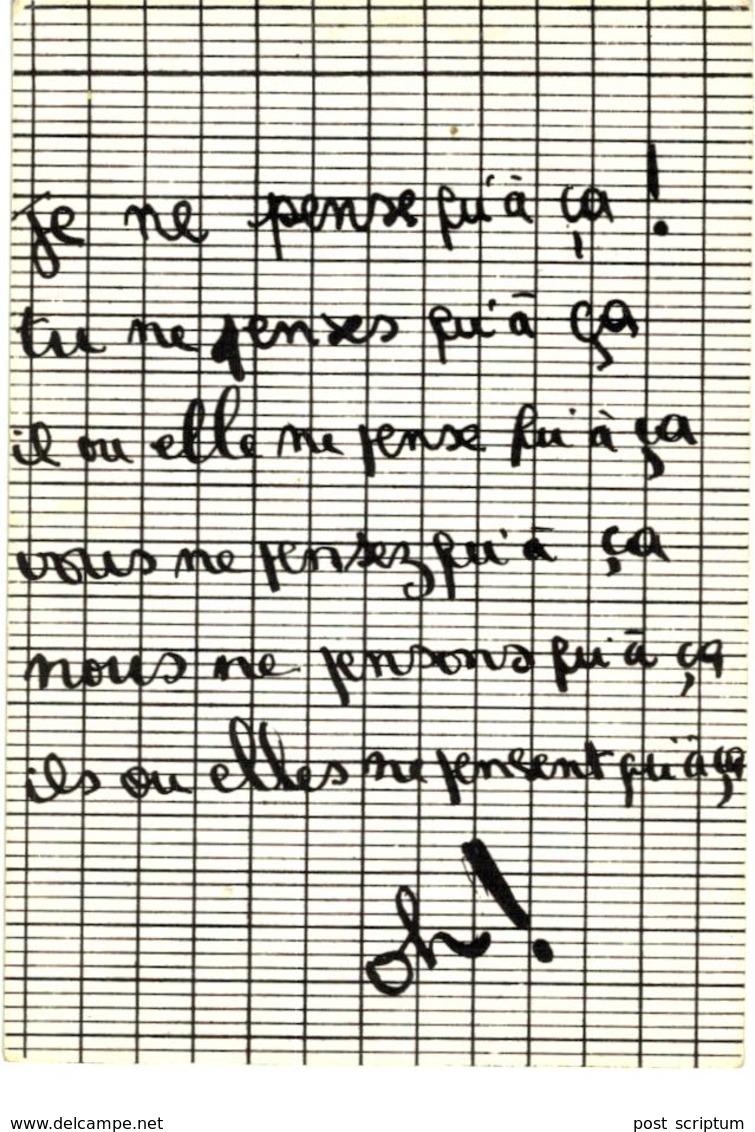 Je ne pense qu'à ça !
tu ne penses qu'à ça
il ou elle ne pense qu'à ça
vous ne pensez qu'à ça
nous ne pensons qu'à ça
ils ou elles ne pensent qu'à ça
oh !
www.delcampe.net
post_scriptum